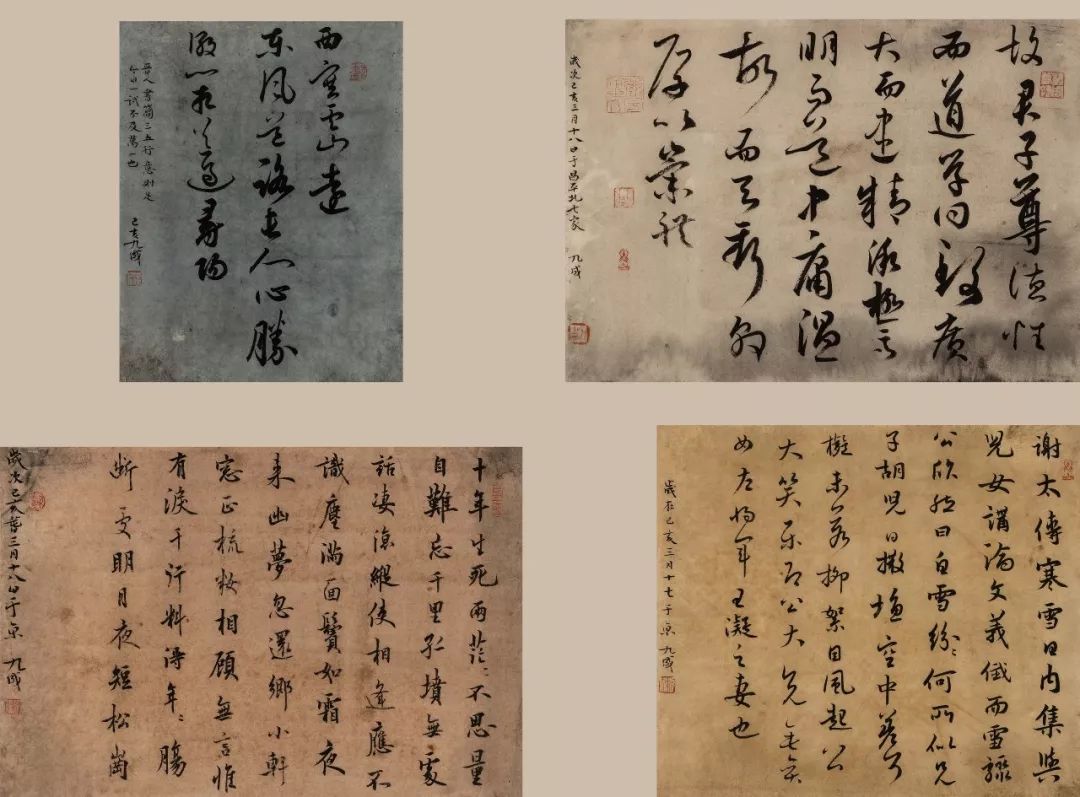 西塞雲山遠
東風道路長人心勝
潮水相送過潯陽
晉人書簡三五行意則足
今日一試不及萬一也
己亥九成
故君子尊德性
而道學問致廣
大而盡精微極高
明而道中庸溫
故而知新敦
厚以崇禮
歲次己亥三月十八日于昌平 九成
十年生死兩茫茫不思量
自難忘千里孤墳無處
話淒涼縱使相逢應不
識塵滿面鬢如霜夜
來幽夢忽還鄉小軒
窓正梳妝相顧無言惟
有淚千行料得年〻腸
斷處明月夜短松崗
歲次己亥暮三月十八日于京 九成
謝太傅寒雪日內集與
兒女講論文義俄而雪驟
公欣然曰白雪紛〻何所似兄
子胡兒曰撒鹽空中差可
擬未若柳絮因風起公
大笑樂即公大兄無奕
女左將軍王凝之妻也
歲在己亥三月十七于京 九成